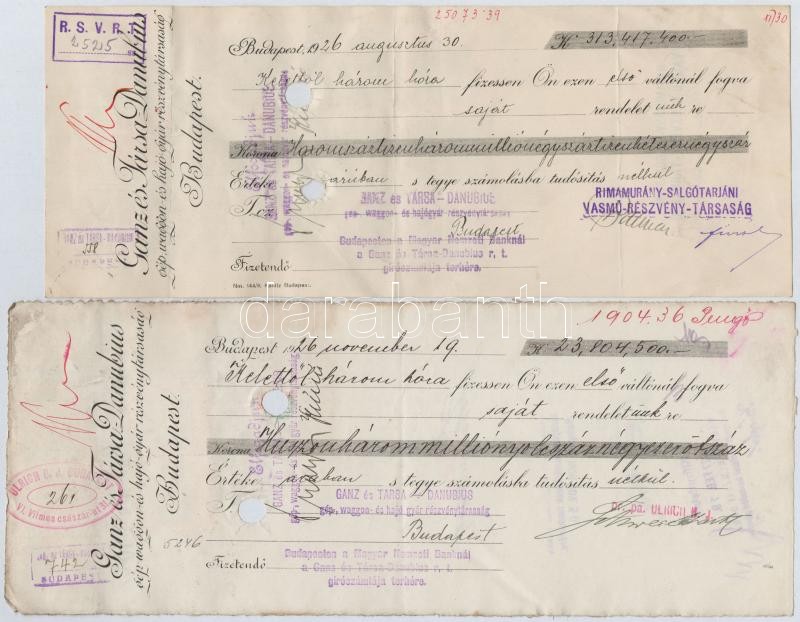 R. S. V. R. T.
2525
25073·39
11/30
Budapest, 1926 augusztus 30.
K 313,417.400.—
Kelettől három hóra fizessen Ön ezen első váltónál fogva
saját rendelet ünk re
Korona Háromszáztizenhárommilliónégyszáztizenhétezernégyszáz
Értéke áruban s tegye számolásba tudósítás nélkül
GANZ és TÁRSA – DANUBIUS
gép-, waggon- és hajógyár részvénytársaság
Budapest
RIMAMURÁNY-SALGÓTARJÁNI
VASMŰ-RÉSZVÉNY-TÁRSASÁG
Budapesten a Magyar Nemzeti Banknál
a Ganz és Társa-Danubius r. t.
girószámlája terhére.
Fizetendő
Ganz és Társa Danubius
gép- waggon- és hajó-gyár részvénytársaság
Budapest.
558
BUDAPEST
1904.36 Pengő
Budapest 1926 november 19.
K 23,804,500.—
Kelettől három hóra fizessen Ön ezen első váltónál fogva
saját rendelet ünk re
Korona Huszonhárommilliónyolcszáznégyezerötszáz
Értéke áruban s tegye számolásba tudósítás nélkül.
GANZ és TÁRSA – DANUBIUS
gép-, waggon- és hajó gyár részvénytársaság
Budapest
ppa. ULRICH B. J.
Budapesten a Magyar Nemzeti Banknál
a Ganz és Társa-Danubius r. t.
girószámlája terhére.
Fizetendő
Ganz és Társa-Danubius
gép- waggon- és hajó-gyár részvénytársaság
Budapest.
ULRICH B. J.
261
VI. Vilmos császár-út
5246
742
BUDAPEST
darabanth